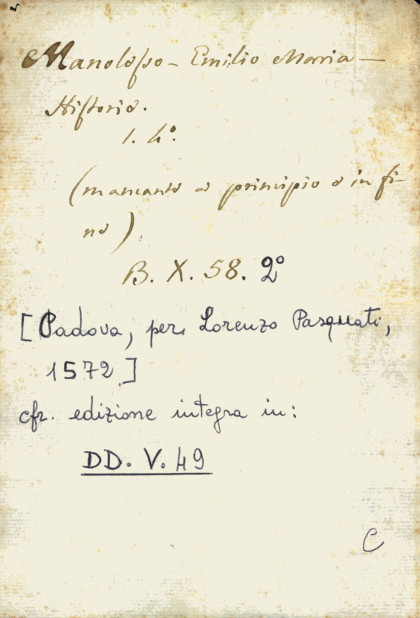 Manolesso - Emilio Maria -
Historia.
1. 4º.
(mancante a principio e in fi-
ne).
B. X. 58. 2º
[Padova, per Lorenzo Pasquati,
1572.]
cfr. edizione integra in:
DD. V. 49
C